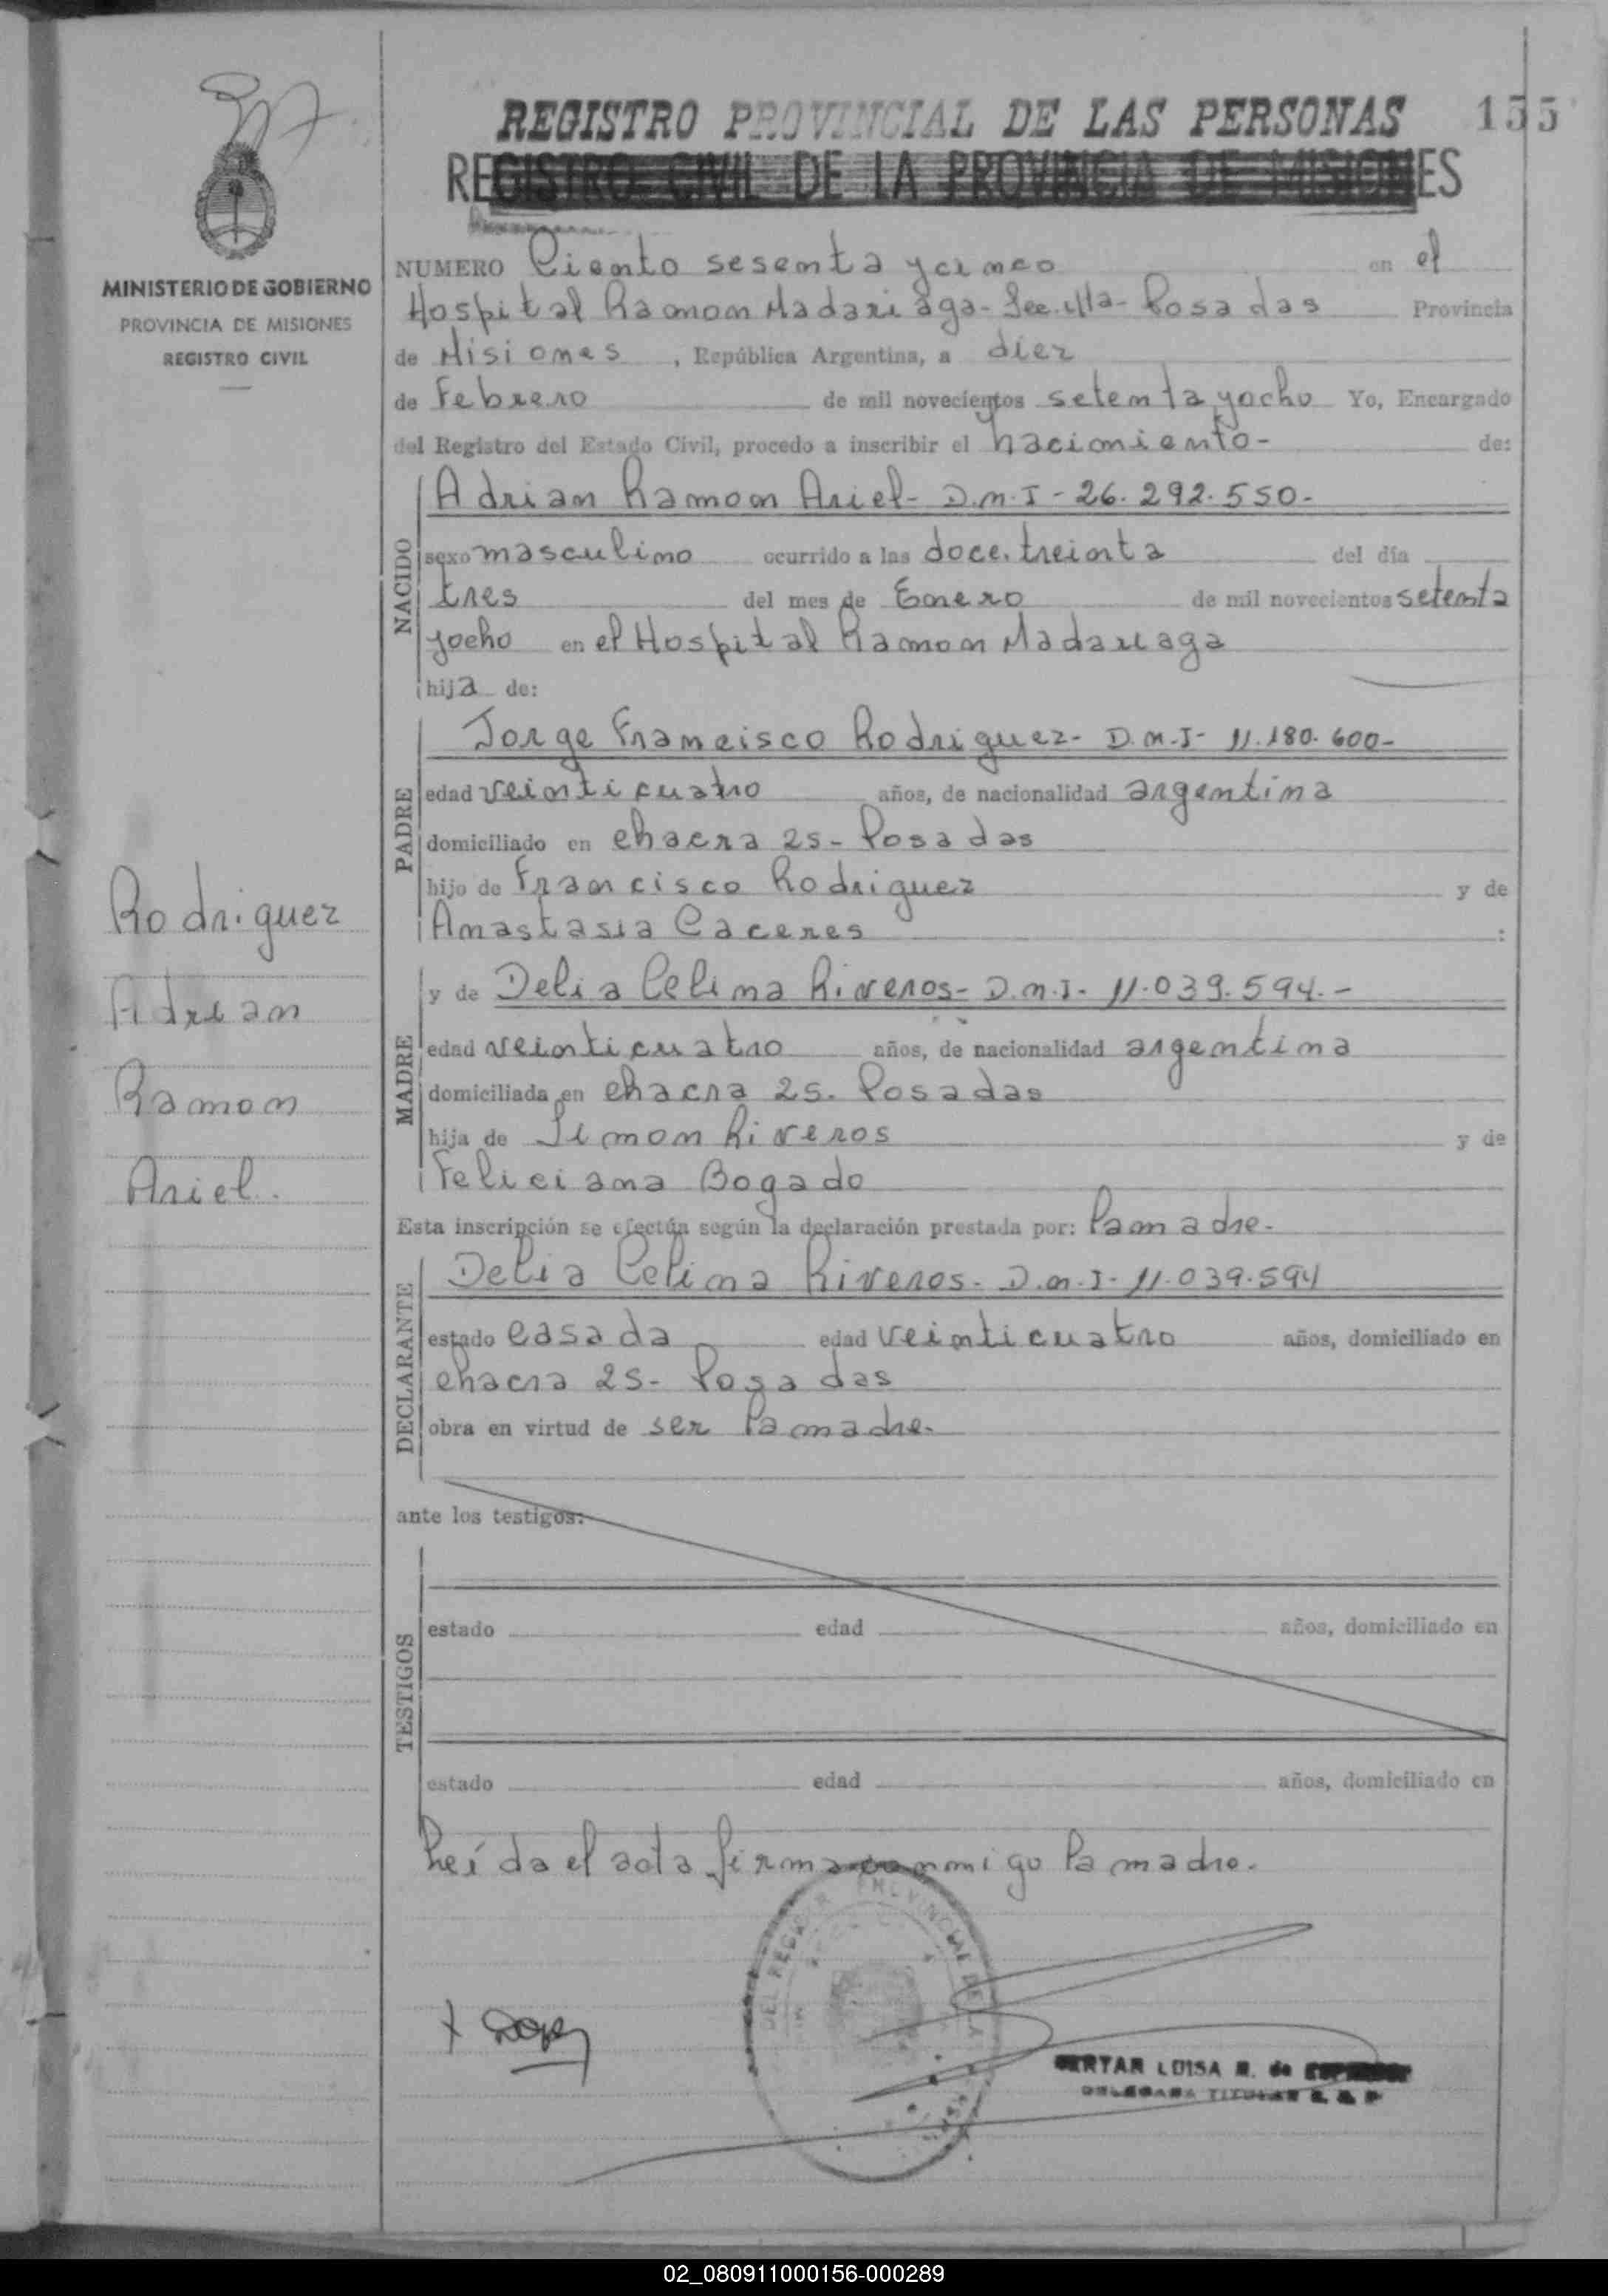 REGISTRO PROVINCIAL DE LAS PERSONAS 155
REGISTRO CIVIL DE LA PROVINCIA DE MISIONES
MINISTERIO DE GOBIERNO
PROVINCIA DE MISIONES
REGISTRO CIVIL
NUMERO Ciento sesenta y cinco en el
Hospital Ramon Madariaga - Posadas Provincia
de Misiones, República Argentina, a diez
de Febrero de mil novecientos setenta y ocho Yo, Encargado
del Registro del Estado Civil, procedo a inscribir el nacimiento - de:
NACIDO
Adrian Ramon Ariel - D.N.I - 26.292.550-
sexo masculino ocurrido a las doce. treinta del día
tres del mes de Enero de mil novecientos setenta
y ocho en el Hospital Ramon Madariaga
hija de:
PADRE
Jorge Francisco Rodriguez - D.N.I - 11.180.600-
edad veinticuatro años, de nacionalidad argentina
domiciliado en chacra 25 - Posadas
hijo de Francisco Rodriguez y de
Anastasia Caceres :
MADRE
y de Delia Celina Riveros - D.N.I - 11.039.594.-
edad veinticuatro años, de nacionalidad argentina
domiciliada en chacra 25. Posadas
hija de Simon Riveros y de
Feliciana Bogado
Esta inscripción se efectúa según la declaración prestada por: la madre.
DECLARANTE
Delia Celina Riveros - D.N.I - 11.039.594
estado casada edad veinticuatro años, domiciliado en
chacra 25 - Posadas
obra en virtud de ser la madre.
ante los testigos:
TESTIGOS
estado edad años, domiciliado en
estado edad años, domiciliado en
Leída el acta firma conmigo la madre.
Rodriguez
Adrian
Ramon
Ariel.
LUISA de
DELEGADA TITULAR
02_080911000156-000289